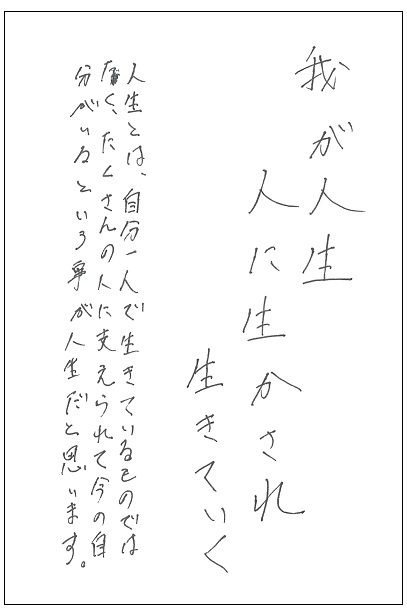 我が人生
人に生かされ
生きていく
人生とは、自分一人で生きているものでは
なく、たくさんの人に支えられて今の自
分がいるという事が人生だと思います。